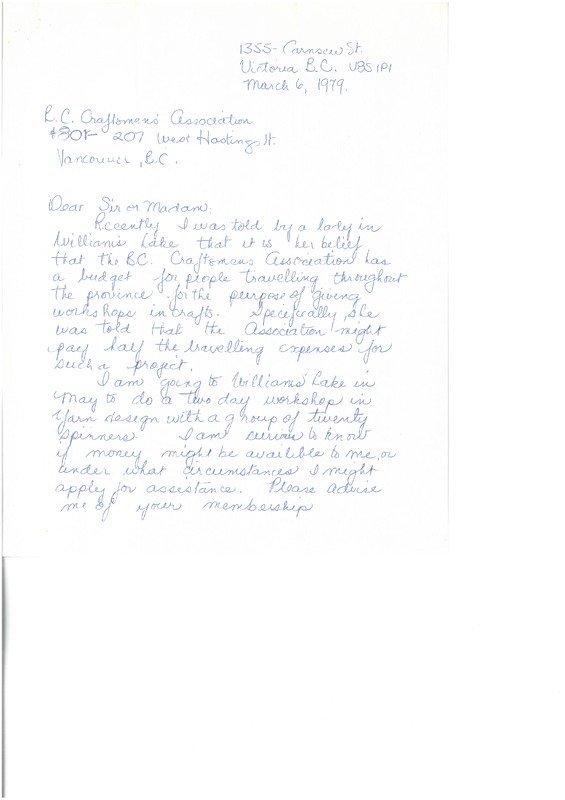 1355- Carnsew St.
Victoria B.C. V8S 1P1
March 6, 1979.
B.C. Craftsmans Association
#801- 207 West Hastings St.
Vancouver, B.C.
Dear Sir or Madam;
Recently I was told by a lady in
Williams Lake that it is her belief
that the BC. Craftsmans Association has
a budget for people travelling throughout
the province for the purpose of giving
workshops in crafts. Specifically, she
was told that the Association might
pay half the travelling expenses for
such a project.
I am going to Williams Lake in
May to do a two day workshop in
Yarn design with a group of twenty
spinners. I am curious to know
if money might be availible to me, or
under what circumstances I might
apply for assistance. Please advise
me of your membership